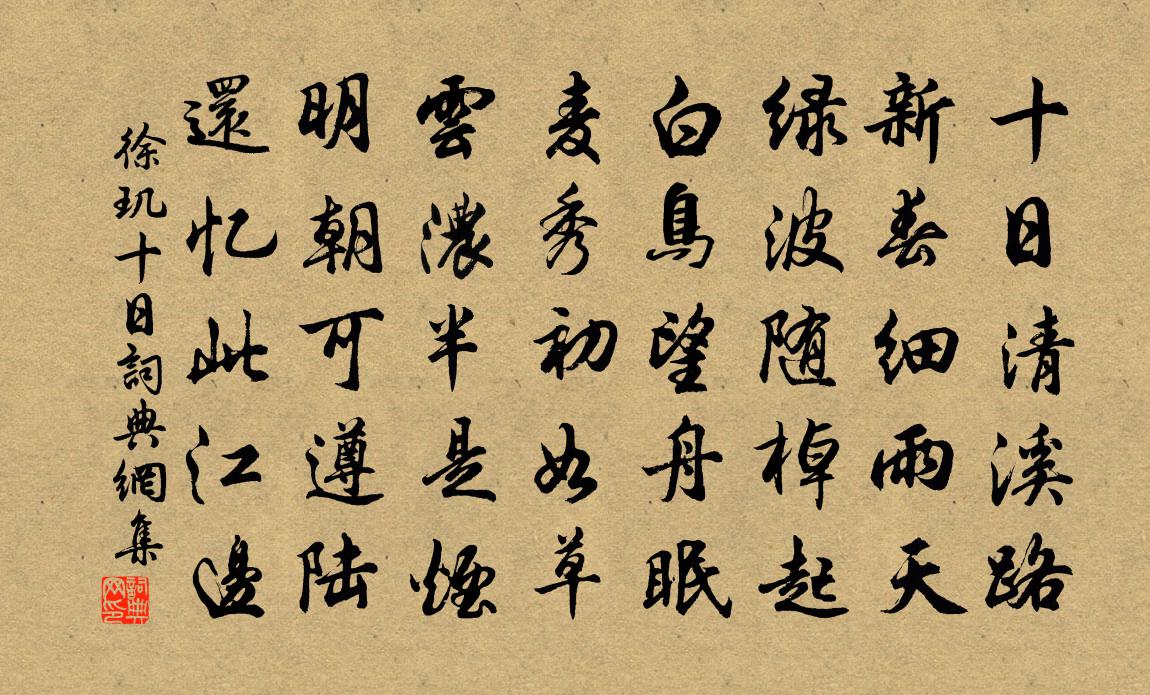 十日清溪路
新春细雨天
绿波随棹起
白鳥望舟眠
麦秀初如草
雲濃半是煙
明朝可遵陆
還忆此江邊
徐玑十日詞典網集
詞典网印